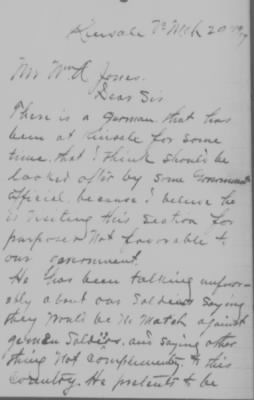 Kinsale Va Mch 20 1917
Mr Wm A Jones.
Dear Sir
There is a german that has
been at kinsale for some
time. that I think should be
looked after by some Government
official because I believe he
is visiting this section for
purposes Not favorable to
our government.
He has been talking unfavor-
ably about our Soldiers saying
they would be No Match against
german Soldiers. and saying other
thing Not complimentry to this
country. He pretents to be